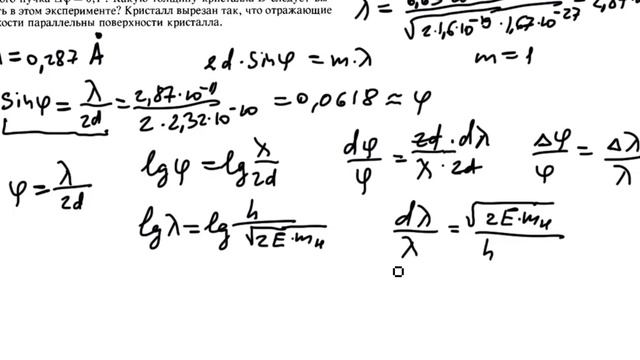 ого пучка Δφ = 0,1°. Какую толщину кристалла
ть в этом эксперименте? Кристалл вырезан так, что отражающие
кости параллельны поверхности кристалла.
λ =
√2·1,6·10⁻¹⁹·1,67·10⁻²⁷
= 0,287 Å
2d·sinφ = m·λ
m = 1
sinφ = λ/2d = 2,87·10⁻¹¹/2·2,32·10⁻¹⁰ = 0,0618 ≈ φ
φ = λ/2d
lgφ = lg λ/2d
dφ/φ = 2d·dλ/λ·2d
Δφ/φ = Δλ/λ
lgλ = lg h/√2E·mн
dλ/λ = √2E·mн/h